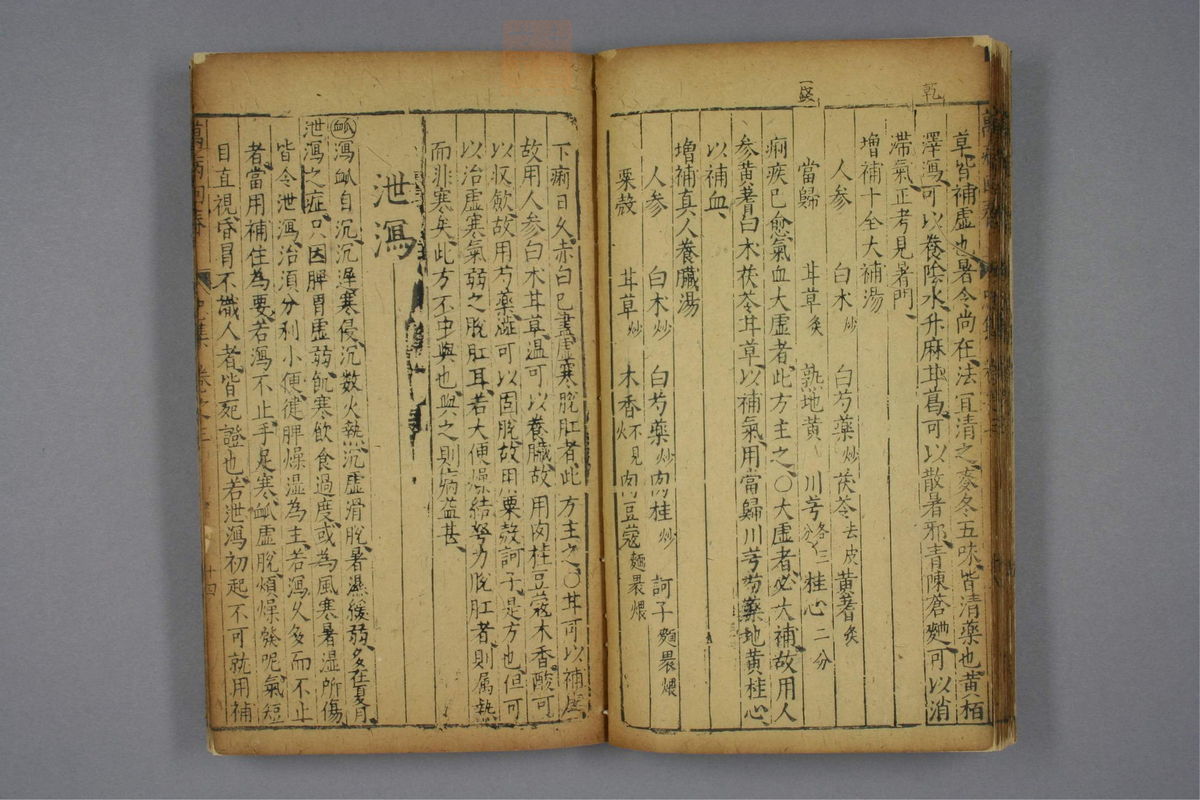 乾
一與
草皆補虛也暑令尚在法宜清之麥冬五味皆清藥也黃栢
澤瀉可以養陰水升麻耳葛可以散暑邪青陳蒼麯可以消
滯氣正考見暑門
增補十全大補湯
人參 白朮炒 白芍藥炒 茯苓去皮 黃蓍炙
當歸 耳草炙 熟地黃 川芎各二分 桂心二分
痢疾已愈氣血大虛者此方主之○大虛者必大補故用人
參黃蓍白朮茯苓耳草以補氣用當歸川芎芍藥地黃桂心
以補血
增補真人養臟湯
人參 白朮炒 白芍藥炒 肉桂炒 訶子麵裹煨
粟殼 耳草炒 木香不見火 肉豆蔻麵裹煨
下痢日久赤白已盡虛寒脫肛者此方主之○耳可以補虛
故用人參白朮耳草温可以養臟故用肉桂豆蔻木香酸可
以收飲故用芍藥澁可以固脫故用粟殼訶子是方也但可
以治虛寒氣弱之脫肛耳若大便燥結努力脫肛者則属熱
而非寒矣此方不中與也與之則病益甚
泄瀉
脉 瀉脉自沉沉遲寒侵沉数火熱沉虛滑脫暑濕緩弱多在夏月
泄瀉之症只因脾胃虛弱飢寒飲食過度或為風寒暑湿所傷
皆令泄瀉治須分利小便健脾燥湿為主若瀉久多而不止
者當用補住為要若瀉不止手足寒脉虛脫煩燥發呃氣短
目直視昏冒不識人者皆死證也若泄瀉初起不可就用補
萬病回春 卷之三 十四